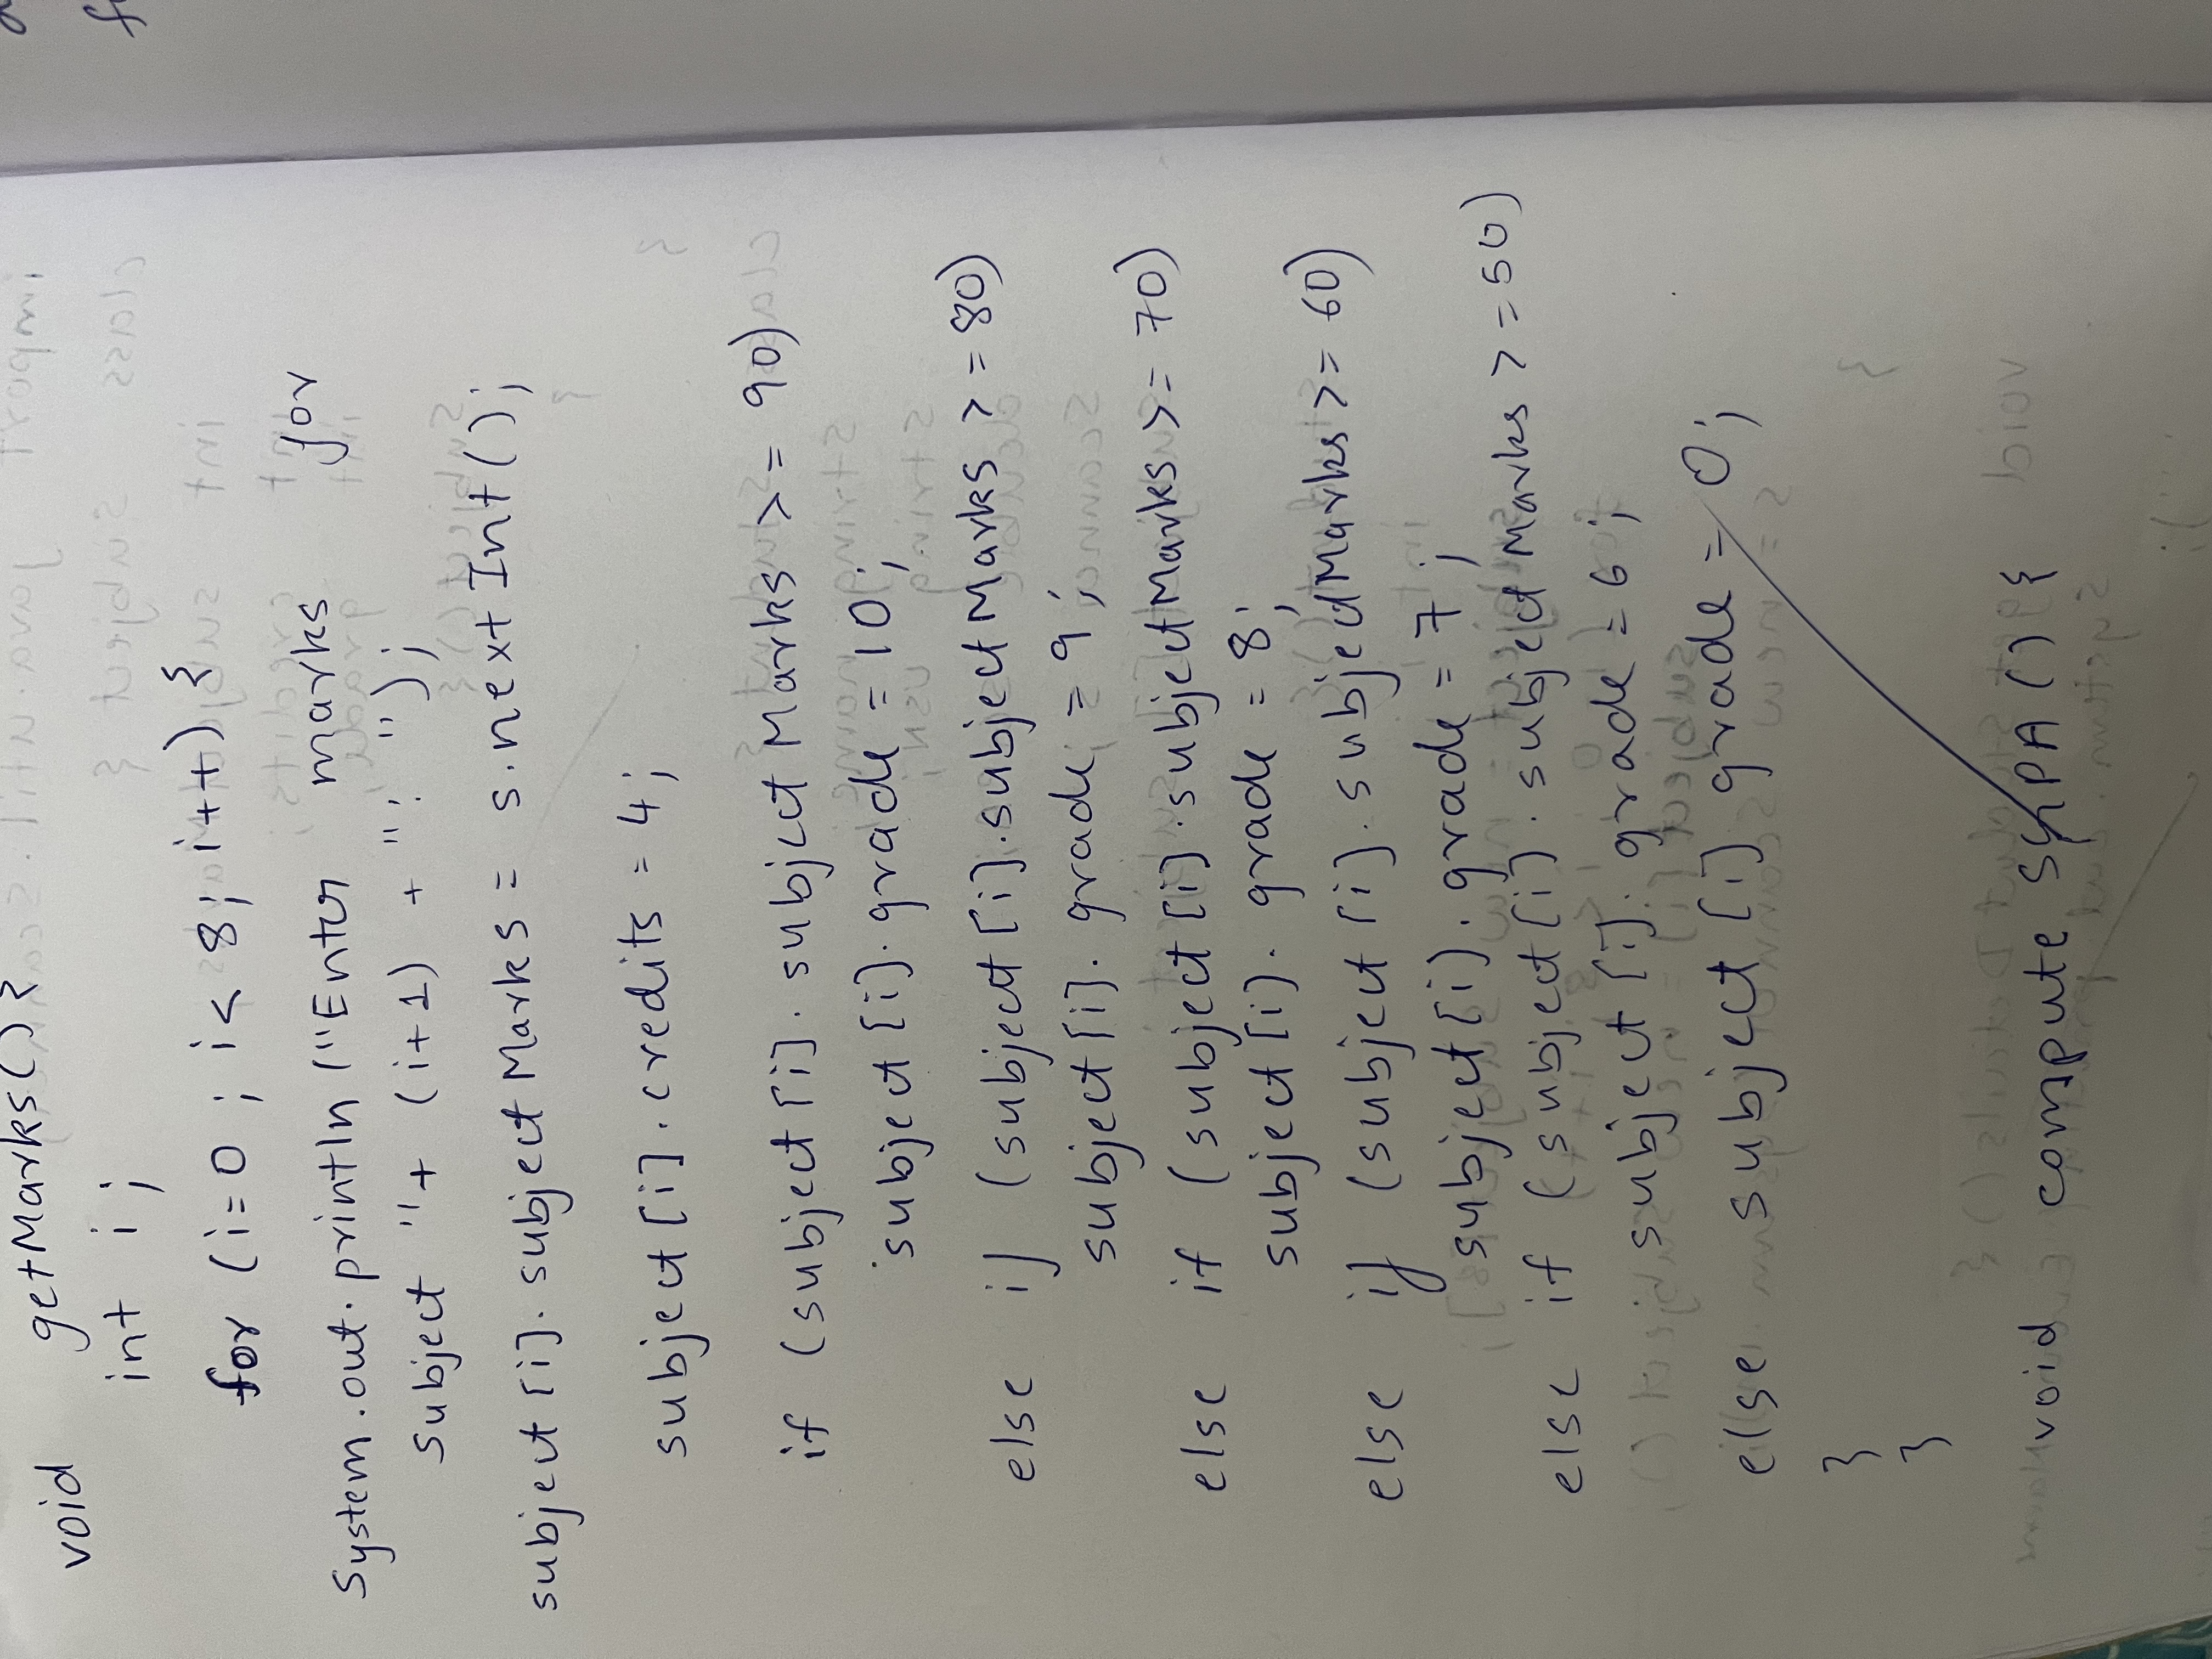 void getMarks(){
int i;
for (i=0 ; i< 8; i++) {
System.out.println ("Enter marks for
subject "+ (i+1) + ": ");
subject [i]. subjectMarks = s.nextInt();
subject [i]. credits = 4;
if (subject [i]. subjectMarks >= 90)
subject [i]. grade = 10;
else if (subject [i].subjectMarks >= 80)
subject [i]. grade = 9;
else if (subject [i].subjectMarks >= 70)
subject [i]. grade = 8;
else if (subject [i]. subjectMarks >= 60)
subject [i]. grade = 7;
else if (subject [i]. subjectMarks >= 50)
subject [i]. grade = 6;
else subject [i] grade = 0;
}
}
void compute SGPA () {